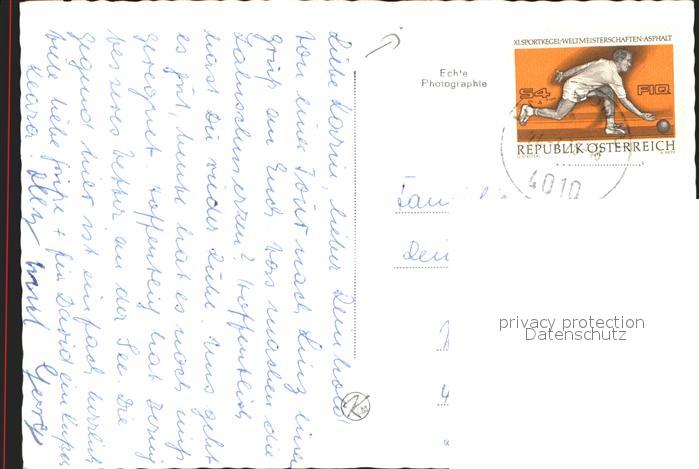 Liebe Korrin, lieber Reinhold!
Von einer Tour nach Linz einen
Gruß an Euch. Was machen die
Zahnschmerzen? Hoffentlich
hast Du wieder Ruhe. Uns geht
es gut, heute hat es noch nicht
geregnet. Hoffentlich hat
besseres Wetter an der See. Die
Gegend hier ist einfach herrlich
Viele liebe Grüße + für David ein Küßchen
und
Echte
Photographie
XI.SPORTKEGEL-WELTMEISTERSCHAFTEN-ASPHALT
S4
FIQ
REPUBLIK ÖSTERREICH
4010
Fam
privacy protection
Datenschutz